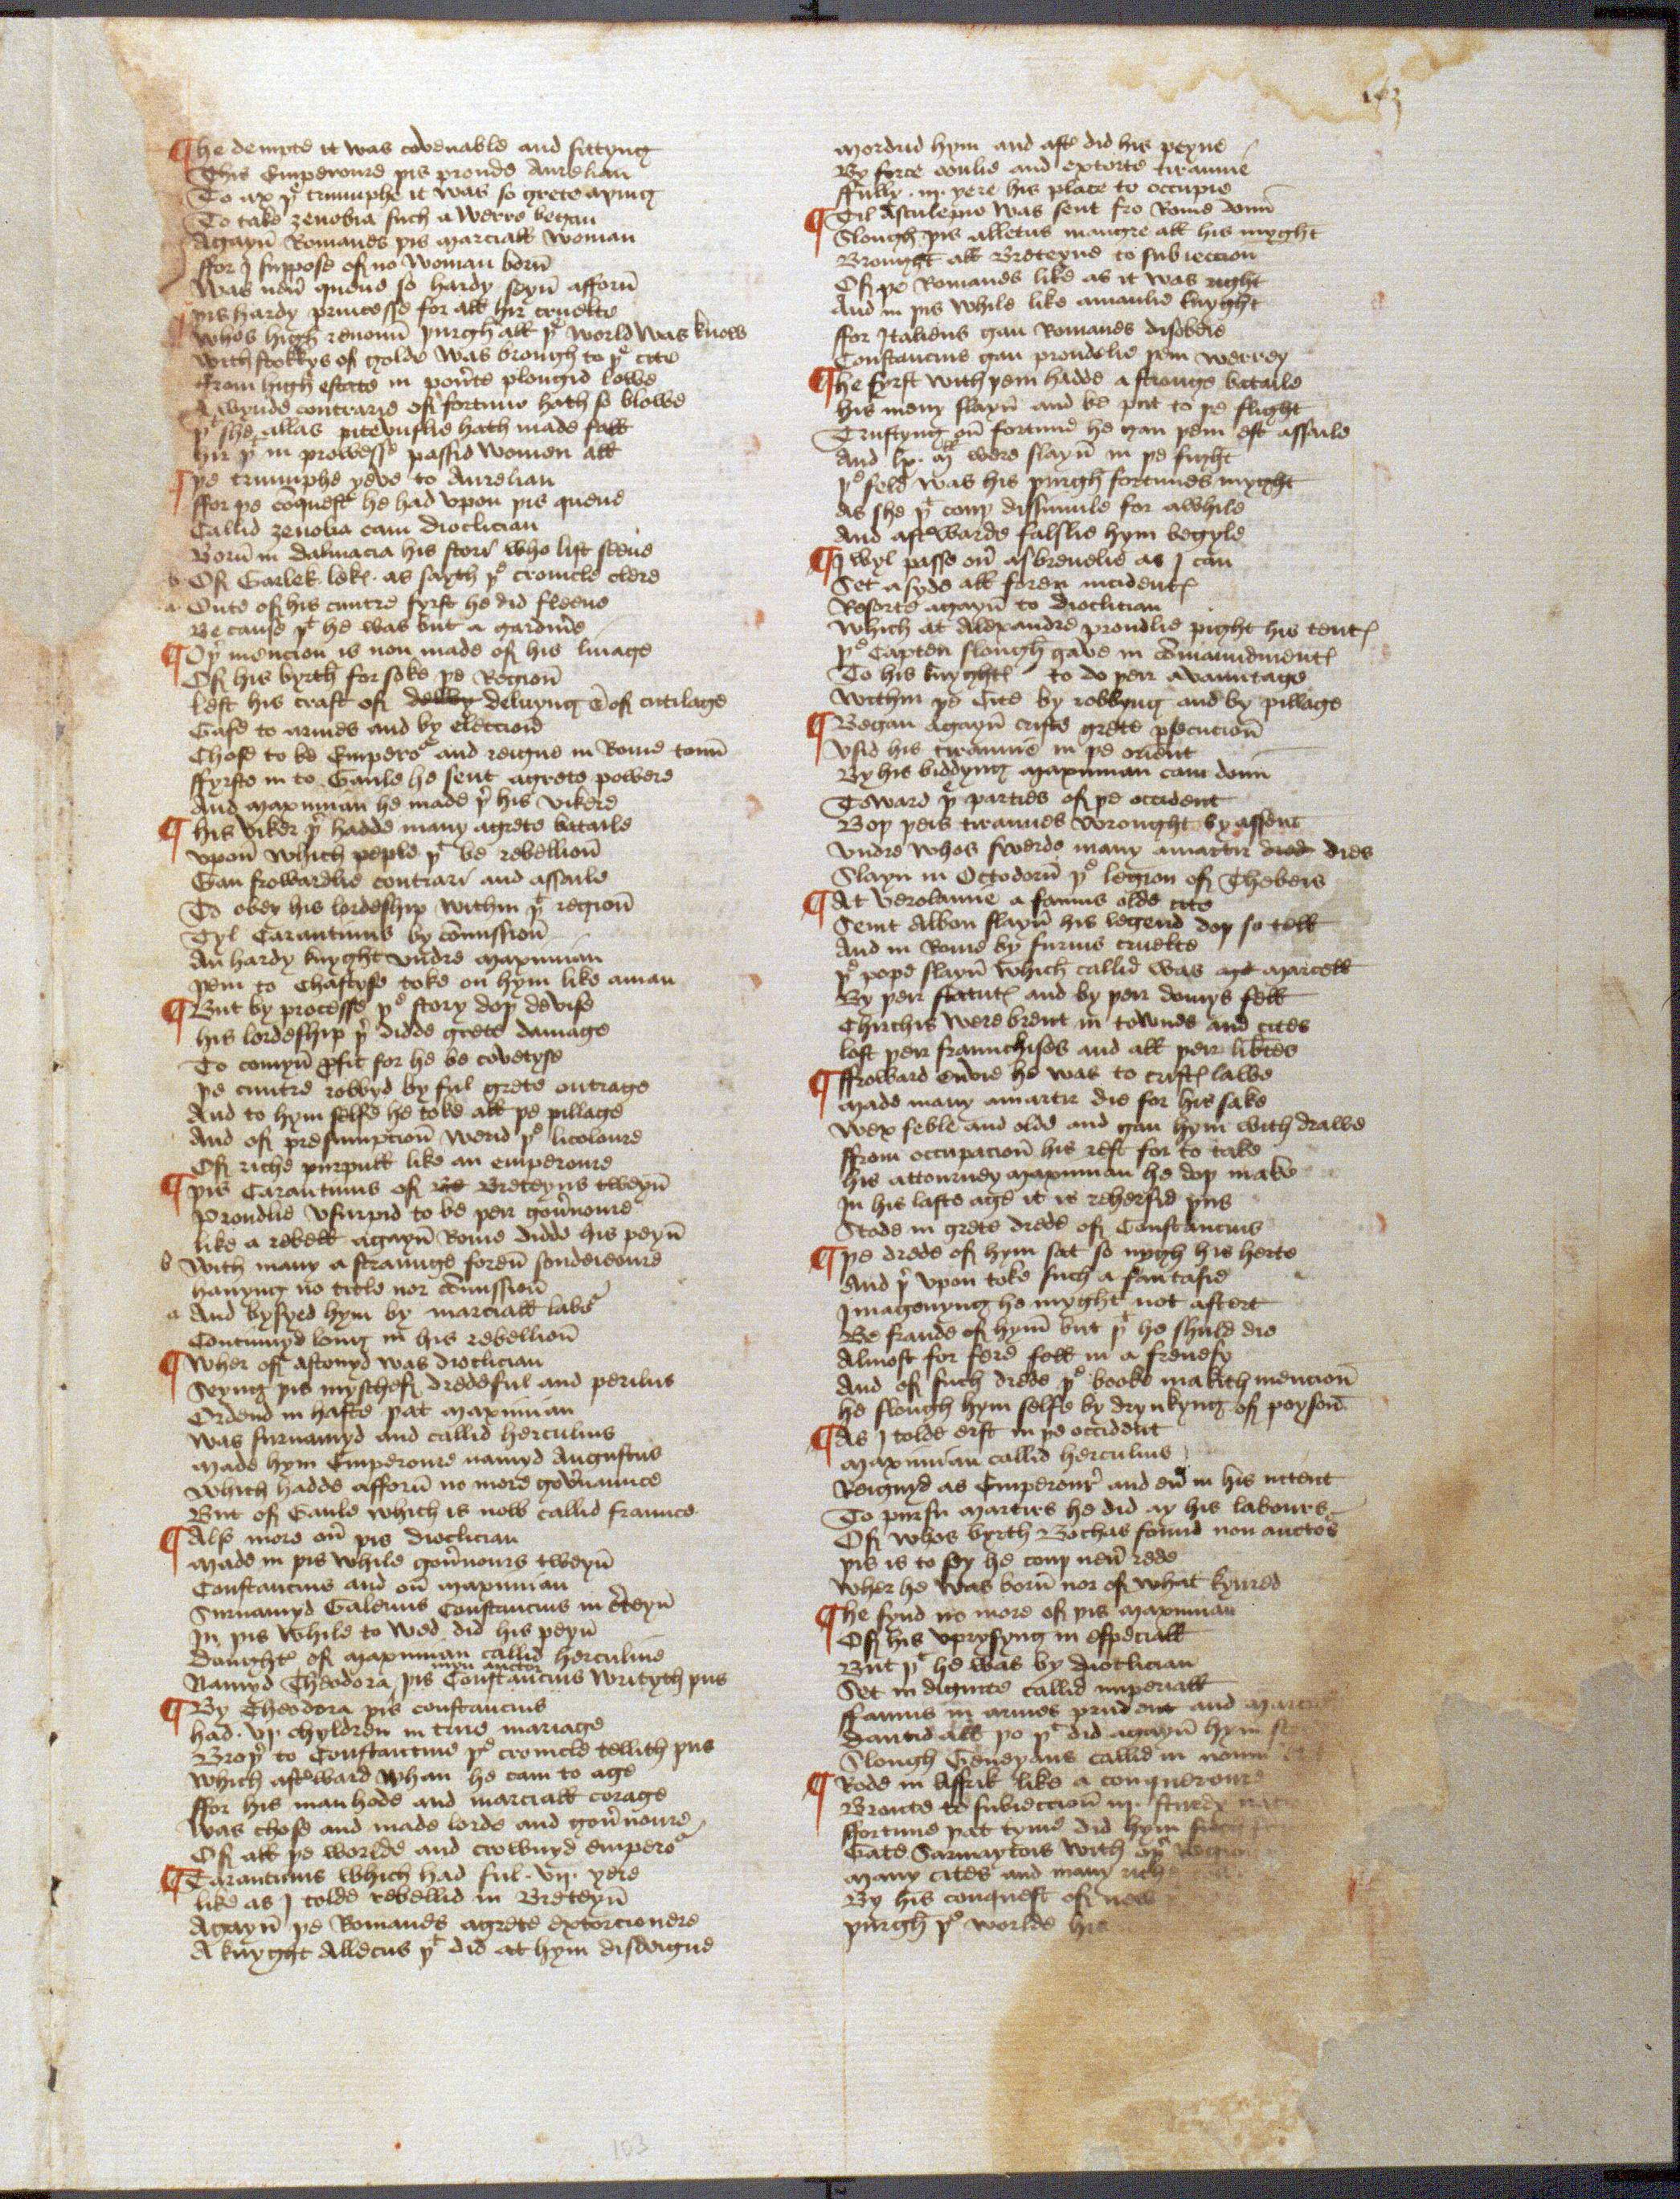 163
he dempte it was covenable and sittyng
This Emperoure þis proude Aurelian
To ax þe triumphe it was so grete aþing
To take zenobia such a werre began
Agayn̄ Romanes þis marciall woman
ffor I suppose of no woman born̄
Was neu̓ quene so hardy seyn̄ afforn̄
þis hardy princesse for all hir cruelte
whos high renoun̄ þurgh all þe world was know
with stokkys of golde was brough to þe cite
ffrom high estate in pou̓te plongid lowe
A wynde contrarie of fortune hath so blowe
þt she allas pitevuslie hath made fall
hir þt in prowesse passid women all
þe triumphe yeve to Aurelian
ffor þe co̅quest he had vpon þis quene
Callid zenobia cam dioclician
Born̄ in dalmacia his stori who list seene
b Of Garlek leke as sayth þe cronicle clere
a Oute of his cuntre fyrst he did fleene
Be cause þt he was but a gardin̓e
Oþ̓ mencion is non made of his linage
Of his byrth forsoke þe Region̄
left his craft of deluyng & of cutilage
Gafe to armes and by eleccion̄
Chose to be Empero᷑ and reigne in Rome toun̄
ffyrste in to Gaule he sent agrete powere
And maximian he made þ̓ his vikere
his viker þ̓ hadde many agrete bataile
vpon̄ which peple þt be rebellion̄
Gan frowardlie contrari and assaile
To obey his lordeship within þt region̄
Tyl Carantinus by co̅mission̄
An hardy knyght vndre maximian
þem to Chastyse toke on hym like aman
But by processe þe story doþ devise
his lordeship þ̓ didde grete damage
To comyn̄ ꝓfit for he be covetyse
þe cuntre robbyd by ful grete outrage
And to hym selfe he toke all þe pillage
And of presumption̄ werid þe licoloure
Of riche purpull like an emperoure
þis Carantinus of Breteyns tweyn̄
Proudlie vsurpid to be þeir gou̓noure
like a rebell agayn̄ Rome didde his peyn̄
b with many a straunge foren̄ soudeieoure
hauyng no title nor co̅mission̄
a And bysyed hym by marciall labo᷑
Continuyd long in his rebellion̄
wher of astonyd was dioclician
Seyng þis myschef dredeful and perilus
Ordend in haste þat maximian
was surnamyd and callid herculius
made hym Emperoure namyd Augustus
which hadde afforn̄ no more gou̓naunce
But of Gaule which is now callid fraunce
Als more ou̓ þis dioclician
made in þis while gou̓nours tweyn̄
Constancius and on̄ maximian
Surnamyd Galerius Constancius in c̓teyn̄
In þis while to wed did his peyn̄
Daughte̓ of maximian callid herculine
Namyd Theodora þis myn auctor Constancius writyth þus
By Theodora þis constancius
had .vj. chyldren in true mariage
Broþ̓ to Constantine þe cronicle tellith þus
which aft̓ward whan he cam to age
ffor his manhode and marciall corage
was chose and made lorde and gou̓noure
Of all þe worlde and crownyd empero᷑
Carantinus which had ful .vij. yere
like as I tolde rebellid in Breteyn̄
Agayn̄ þe Romanes agrete extorcionere
A knyght Allecus þt did at hym disdeigne
mordrid hym and aft̓ did his peyne
By force oonlie and extorte tirannie
ffully .iij. yere his place to occupie
Til Asculepio was sent fro Rome doun̄
Slough þis alletus maugre all his myght
Brought all Breteyne to subieccion
Of þe Romanes like as it was right
And in þis while like amanlie knyght
ffor Italiens gan Romanes disobeie
Constancius gan proudelie þem werrey
he fyrst with þem hadde a stronge bataile
his meny slayn̄ and be put to þe flight
Trustyng on̄ fortune he gan þem eft assaile
And lx. ml were slayn̄ in þe fight
þe feld was his þurgh fortunes myght
As she þt couþ dissimule for awhile
And aft̓warde falslie hym begyle
I wyl passe ou̓ as breuelie as I can
Set asyde all foren incidentꝭ
Resorte agayn̄ to dioclician
which at Alexandre proudlie pight his tentꝭ
þe Capten slough gave in co̅maundmentꝭ
To his knyghtꝭ to do þeir avauntage
within þe Cite by robbyng and by pillage
Began agayn̄ criste grete ꝑsecution̄
Vsid his tirannie in þe orient
By his biddyng maximian cam doun
Toward þe parties of þe occident
Boþ þeis tirannes wrought by assent
vndre whos swerde many amartir dies
Slayn in Octodorn̄ þe legion of Thebeis
At verolamie a famus olde cite
Seint Albon slayn̄ his legend doþ so tell
And in Rome by furius cruelte
þe pope slayn̄ which callid was marcell
By þeir statutꝭ and by þeir domys fell
Chirchis were brent in townes and cites
lost þeir fraunchises and all þeir lib̓tes
ffroward envie he was to cristꝭ lawe
made many amartir die for his sake
wex feble and olde and gan hym with drawe
ffrom occupacion̄ his rest for to take
his attourney maximian he doþ make
In his laste age it is rehersid þus
Stode in grete drede of Constancius
þe drede of hym sat so nygh his herte
And þ̓ vpon toke such a fantasie
Imagenyng he myght not astert
Be fraude of hym̄ but þt he shuld die
Almost for fere fell in a frenesy
And of such drede þe booke makith mencion̄
he slough hym selfe by drynkyng of poyson̄
As I tolde erst in þe occident
maximian callid herculius
Reignyd as Emperour̓ and eu̓ in his nttent
To pursu martirs he did ay his labours
Of whos byrth Bochas found non aucto᷑
þis is to sey he couþ neu̓ rede
wher he was born̄ nor of what kynred
he fynd no more of þis maximian
Of his vprysyng in especiall
But þt he was by dioclician
Set in dignite callid imperiall
ffamus in armes prudent and
dantid all þo þt did agayn̄ hym
Slough Geneyans callid in noum
Rode in Affrik like a conqueroure
Broute to subieccion̄ iij. sturdy
ffortune þat tyme did hym such
Gate Sarmaytois with oþ̓ Region
many cites and many riche
By his conquest of new
þurgh þe worlde his
103